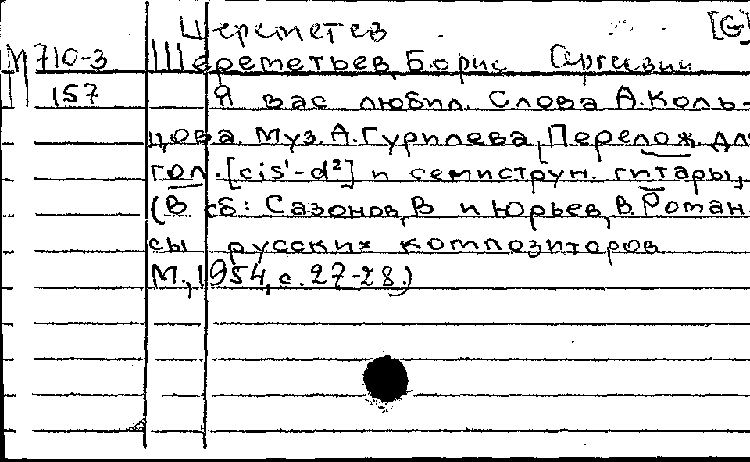 Шереметев [G]
М 710-3 Шереметьев, Борис Сергеевич
157 Я вас любил. Слова А. Коль-
цова. Муз. А. Гурилева, Перелож. для
гол. [cis¹-d²] и семиструн. гитары,
(В сб: Сазонов, В и Юрьев, В. Роман-
сы русских композиторов
М., 1954, с. 27-28.)